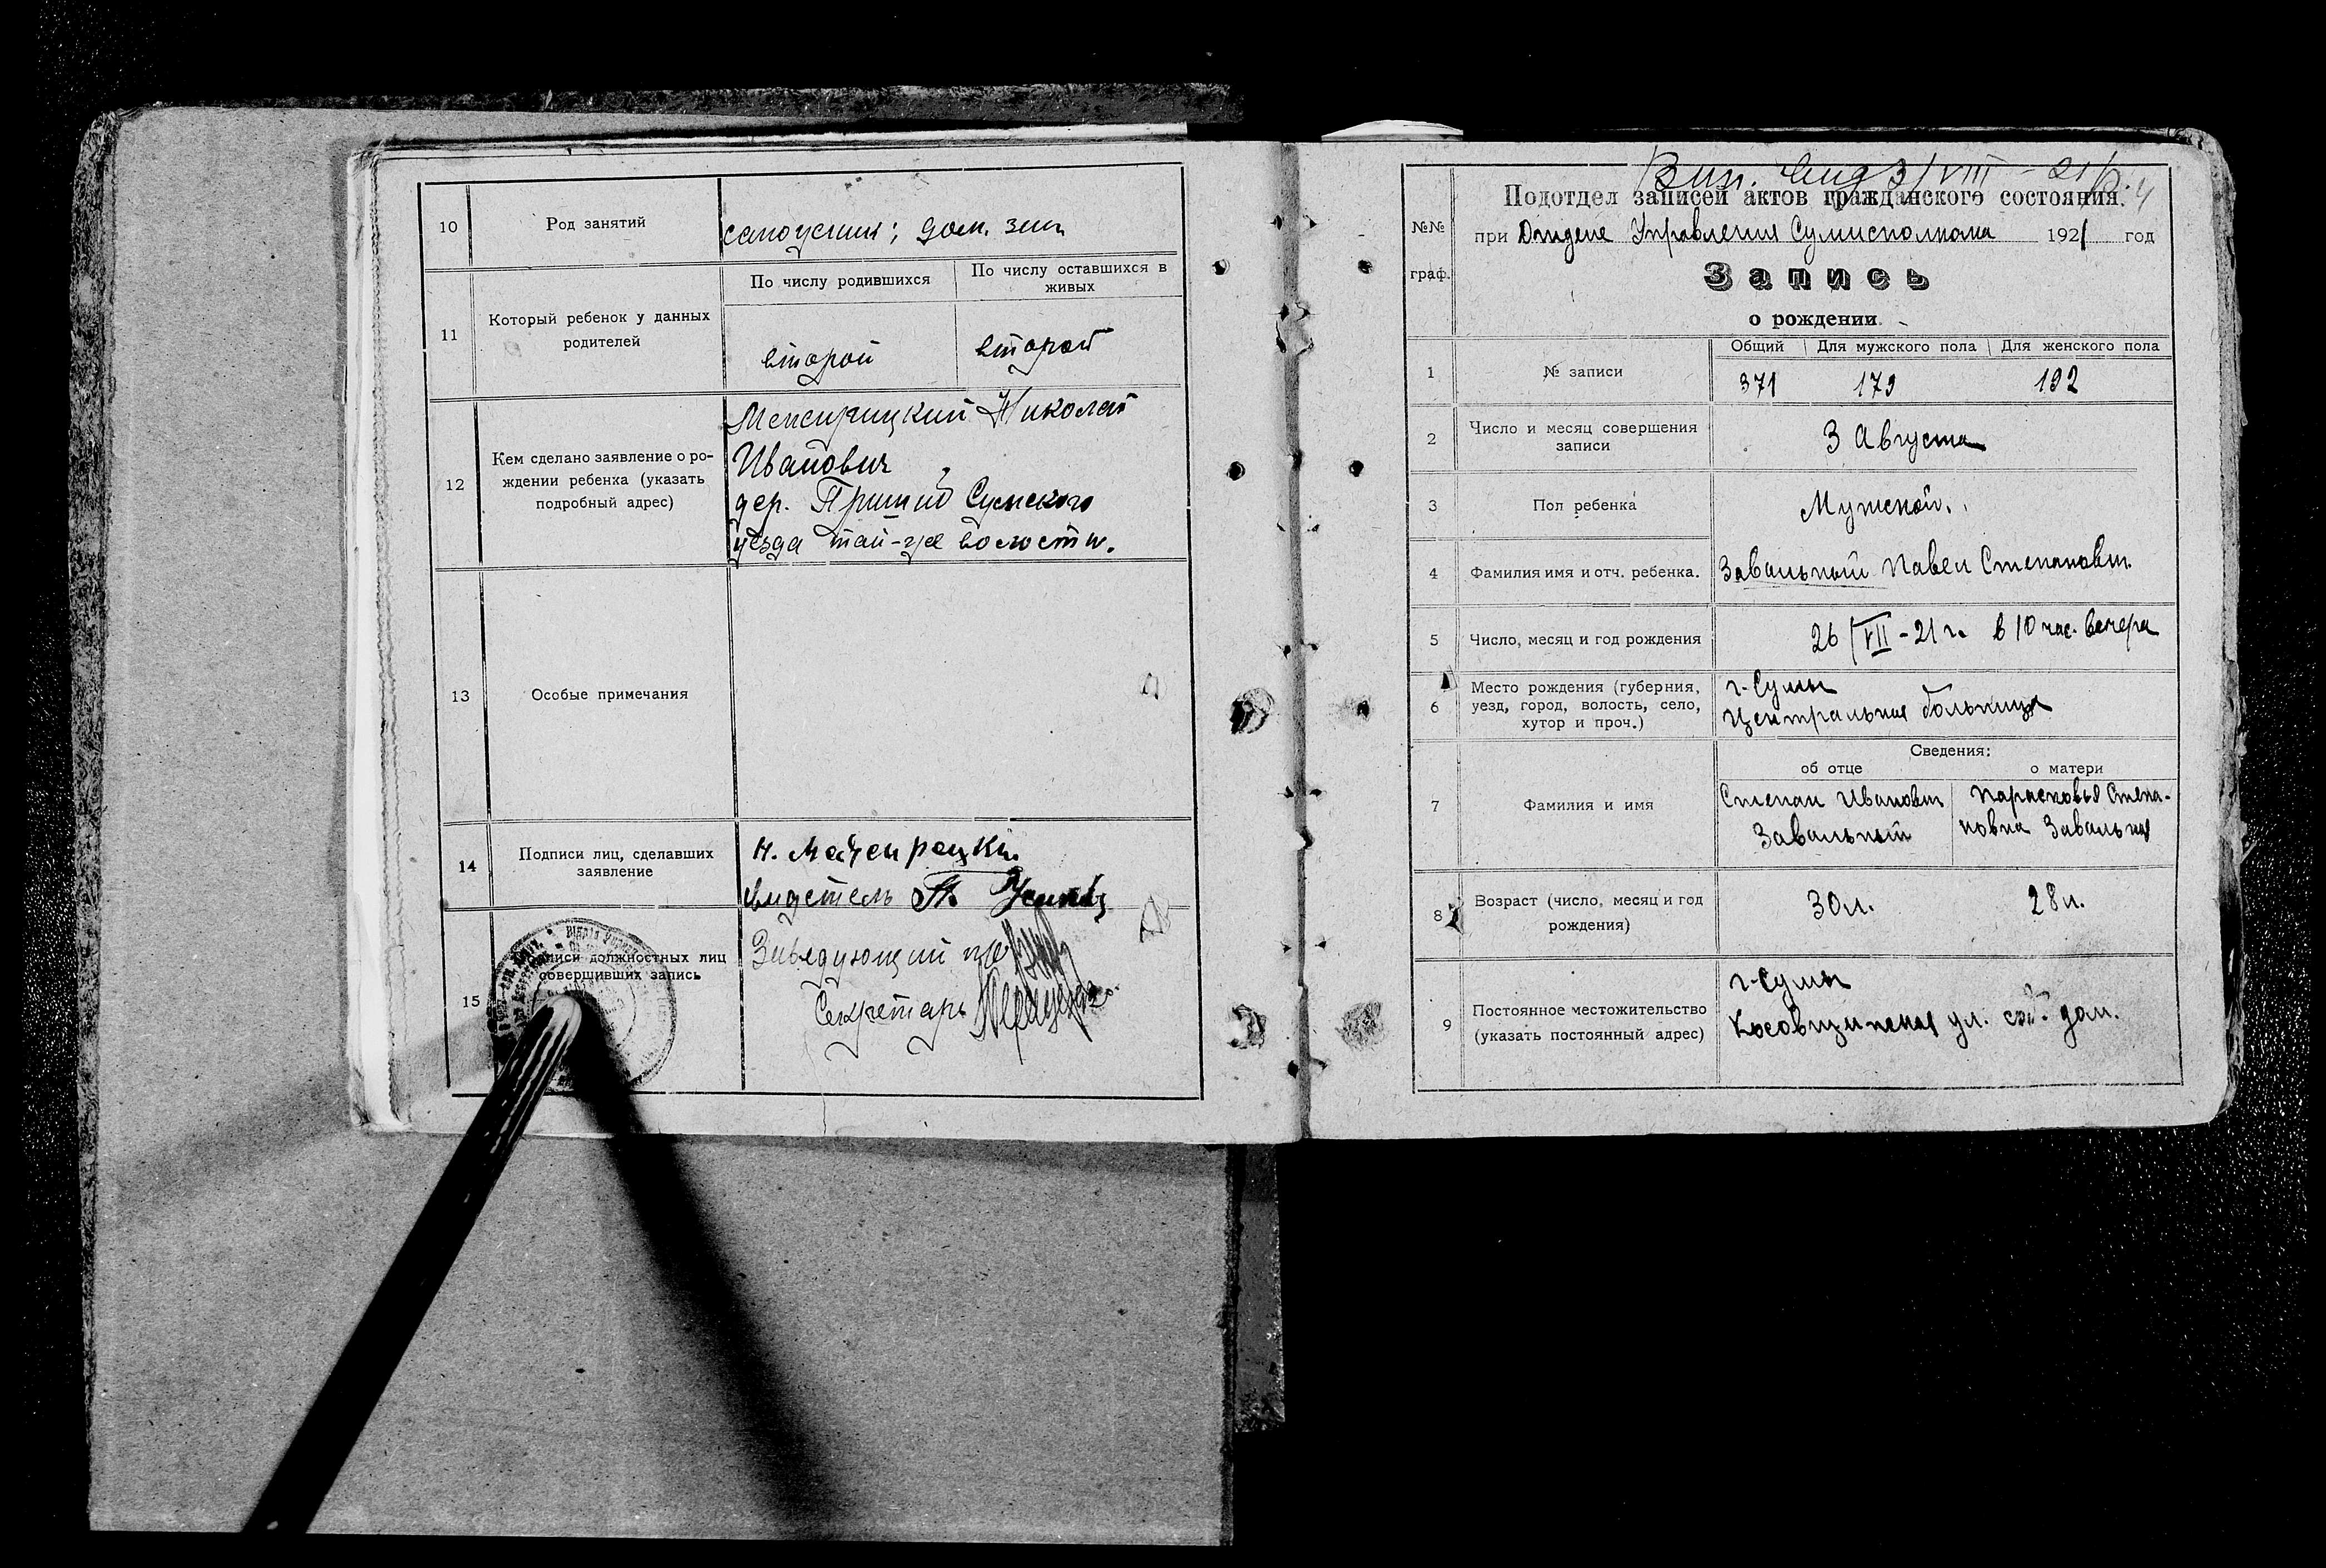 10
Род занятий
дом. зан.
11
Который ребенок у данных
родителей
По числу родившихся
По числу оставшихся в
живых
второй
второй
12
Кем сделано заявление о ро-
ждении ребенка (указать
подробный адрес)
Николай
Иванович
дер. Сумского
уезда той-же волости.
13
Особые примечания
14
Подписи лиц, сделавших
заявление
Н.
свидетель
15
Подписи должностных лиц
совершивших запись
Заведующий
Секретарь
3/VIII - 21
№№
граф.
Подотдел записей актов гражданского состояния.
при Отделе Управления Сумисполкома 1921 год
Запись
о рождении
1
№ записи
Общий
Для мужского пола
Для женского пола
371
179
192
2
Число и месяц совершения
записи
3 Августа
3
Пол ребенка
Мужской.
4
Фамилия имя и отч. ребенка.
Завальный Павел Степанович
5
Число, месяц и год рождения
26/VII - 21 г. в 10 час. вечера
6
Место рождения (губерния,
уезд, город, волость, село,
хутор и проч.)
г. Сумы
Центральная больница
Сведения:
об отце
о матери
7
Фамилия и имя
Степан Иванович
Завальный
Парасковья Степа-
новна Завальная
8
Возраст (число, месяц и год
рождения)
30 л.
28 л.
9
Постоянное местожительство
(указать постоянный адрес)
г. Сумы
Косовщинская ул. соб. дом.